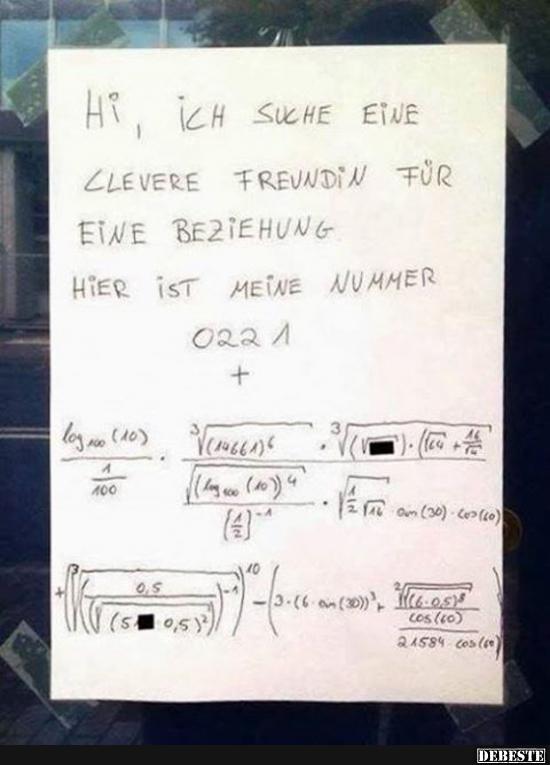 Hi, ICH SUCHE EINE
CLEVERE FREUNDIN FÜR
EINE BEZIEHUNG
HIER IST MEINE NUMMER
0221
+
log₁₀₀(10) / (1/100) · ∛(14661)⁶ · ∛(√ ) · (√64 + 16/√4)
√(log₁₀₀(10))⁴ / [1/2]⁻¹ · √(1/2 √16) · sin(30) · cos(60)
+ (∛(0,5 / √(5 0,5)²)⁻¹)¹⁰ − (3·(6·sin(30))³ + ²√(6·0,5)⁸ / cos(60) / 21584·cos(60))
DEBESTE